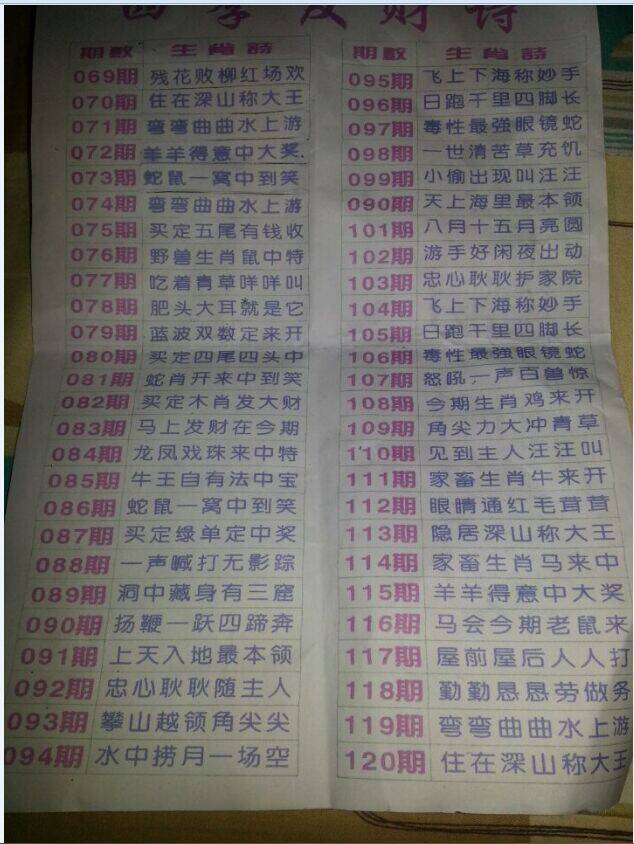 四季发财诗
期数 生肖詩
069期 残花败柳红场欢
070期 住在深山称大王
071期 弯弯曲曲水上游
072期 羊羊得意中大奖
073期 蛇鼠一窝中到笑
074期 弯弯曲曲水上游
075期 买定五尾有钱收
076期 野兽生肖鼠中特
077期 吃着青草咩咩叫
078期 肥头大耳就是它
079期 蓝波双数定来开
080期 买定四尾四头中
081期 蛇肖开来中到笑
082期 买定木肖发大财
083期 马上发财在今期
084期 龙凤戏珠来中特
085期 牛王自有法中宝
086期 蛇鼠一窝中到笑
087期 买定绿单定中奖
088期 一声喊打无影踪
089期 洞中藏身有三窟
090期 扬鞭一跃四蹄奔
091期 上天入地最本领
092期 忠心耿耿随主人
093期 攀山越领角尖尖
094期 水中捞月一场空
期数 生肖詩
095期 飞上下海称妙手
096期 日跑千里四脚长
097期 毒性最強眼镜蛇
098期 一世清苦草充饥
099期 小偷出现叫汪汪
090期 天上海里最本领
101期 八月十五月亮圆
102期 游手好闲夜出动
103期 忠心耿耿护家院
104期 飞上下海称妙手
105期 日跑千里四脚长
106期 毒性最強眼镜蛇
107期 怒吼一声百兽惊
108期 今期生肖鸡来开
109期 角尖力大冲青草
110期 见到主人汪汪叫
111期 家畜生肖牛来开
112期 眼睛通红毛茸茸
113期 隐居深山称大王
114期 家畜生肖马来中
115期 羊羊得意中大奖
116期 马会今期老鼠来
117期 屋前屋后人人打
118期 勤勤恳恳劳做务
119期 弯弯曲曲水上游
120期 住在深山称大王